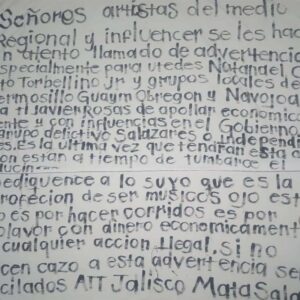 Señores artistas del medio
Regional y influencer se les hac
un atento llamado de advertencia
especialmente para utedes Natanael c
to Torbellino jr y grupos locales de
ermosillo Guaym Obregon y Navojoa
a traverosas de apollar economic
te y con influencias en el Gobierno
grupo delictivo Salazares o Independi
es. Es la ultima vez que tendran esta o
on estan a tiempo de tumbarce el
lucin
ediquence a lo suyo que es la
rofecion de ser musicos ojo est
o es por hacer corridos es por
olavor con dinero economicament
cualquier accion Ilegal. si no
cen cazo a esta advertencia se
cilados ATT Jalisco MataSala